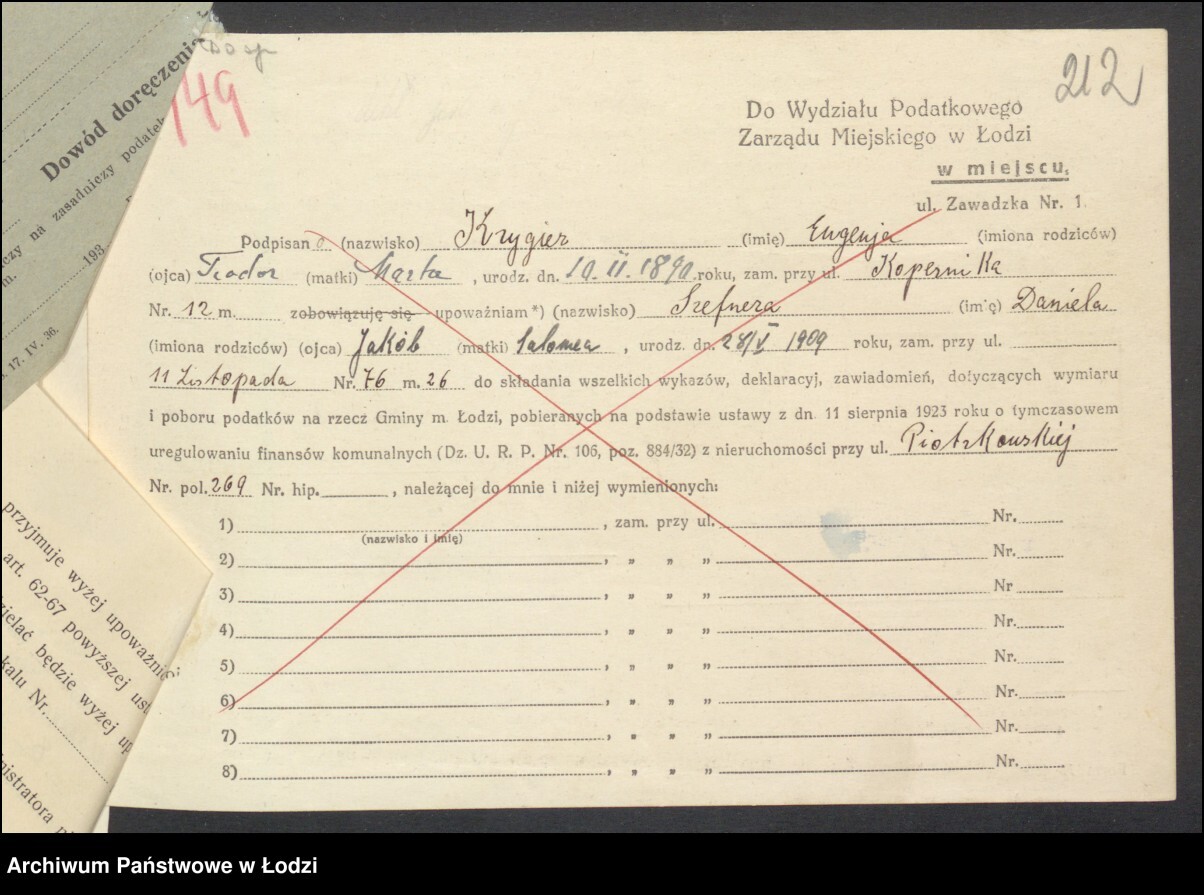 Do sp
149
212
Dowód doręczenia
czy na zasadniczy podatek
m. 193
17. IV. 36.
Do Wydziału Podatkowego
Zarządu Miejskiego w Łodzi
w miejscu,
ul. Zawadzka Nr. 1
Podpisan a (nazwisko) Krygier (imię) Eugenja (imiona rodziców)
(ojca) Teodor (matki) Marta , urodz. dn. 10.II.1890 roku, zam. przy ul. Kopernika
Nr. 12 m. zobowiązuję się upoważniam *) (nazwisko) Szefnera (imię) Daniela
(imiona rodziców) (ojca) Jakób (matki) Salomea , urodz. dn. 28/V 1909 roku, zam. przy ul.
11 Listopada Nr. 76 m. 26 do składania wszelkich wykazów, deklaracyj, zawiadomień, dotyczących wymiaru
i poboru podatków na rzecz Gminy m. Łodzi, pobieranych na podstawie ustawy z dn. 11 sierpnia 1923 roku o tymczasowem
uregulowaniu finansów komunalnych (Dz. U. R. P. Nr. 106, poz. 884/32) z nieruchomości przy ul. Piotrkowskiej
Nr. pol. 269 Nr. hip. , należącej do mnie i niżej wymienionych:
1) , zam. przy ul. Nr.
(nazwisko i imię)
2) , „ „ „ Nr.
3) , „ „ „ Nr
4) , „ „ „ Nr.
5) , „ „ „ Nr.
6) , „ „ „ Nr.
7) , „ „ „ Nr.
8) , „ „ „ Nr.
przyjmuje wyżej upoważni
art. 62-67 powyższej ust
ielać będzie wyżej up
kalu Nr.
nistratora
Archiwum Państwowe w Łodzi